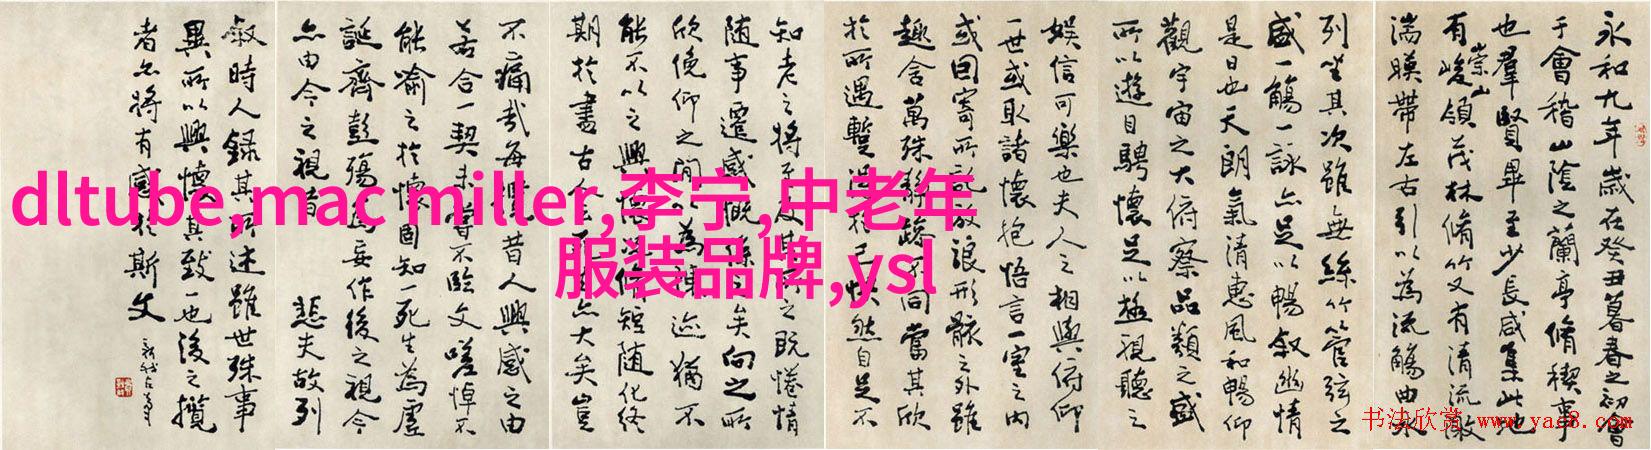 永和九年歲在癸丑暮春之初會
于會稽山陰之蘭亭脩稧事
也羣賢畢至少長咸集此地
有崇山峻領茂林脩竹又有清流激
湍暎帶左右引以為流觴曲水
列坐其次雖無絲竹管弦之
盛一觴一詠亦足以暢叙幽情
是日也天朗氣清惠風和暢仰
觀宇宙之大俯察品類之盛
所以遊目騁懷足以極視聽之
娛信可樂也夫人之相與俯仰
一世或取諸懷抱悟言一室之內
或因寄所託放浪形骸之外雖
趣舍萬殊靜躁不同當其欣
於所遇暫得於己怏然自足不
知老之將至及其所之既惓情
隨事遷感慨係之矣向之所
欣俛仰之間以為陳迹猶不
能不以之興懷況脩短隨化終
期於盡古人云死生亦大矣豈
不痛哉每攬昔人興感之由
若合一契未嘗不臨文嗟悼不
能喻之於懷固知一死生為虛
誕齊彭殤為妄作後之視今
亦由今之視昔 悲夫故列
敘時人錄其所述雖世殊事
異所以興懷其致一也後之攬
者亦將有感於斯文
dltube,mac miller,李宁,中老年
服装品牌,ysl
书法欣赏 www.yac8.com